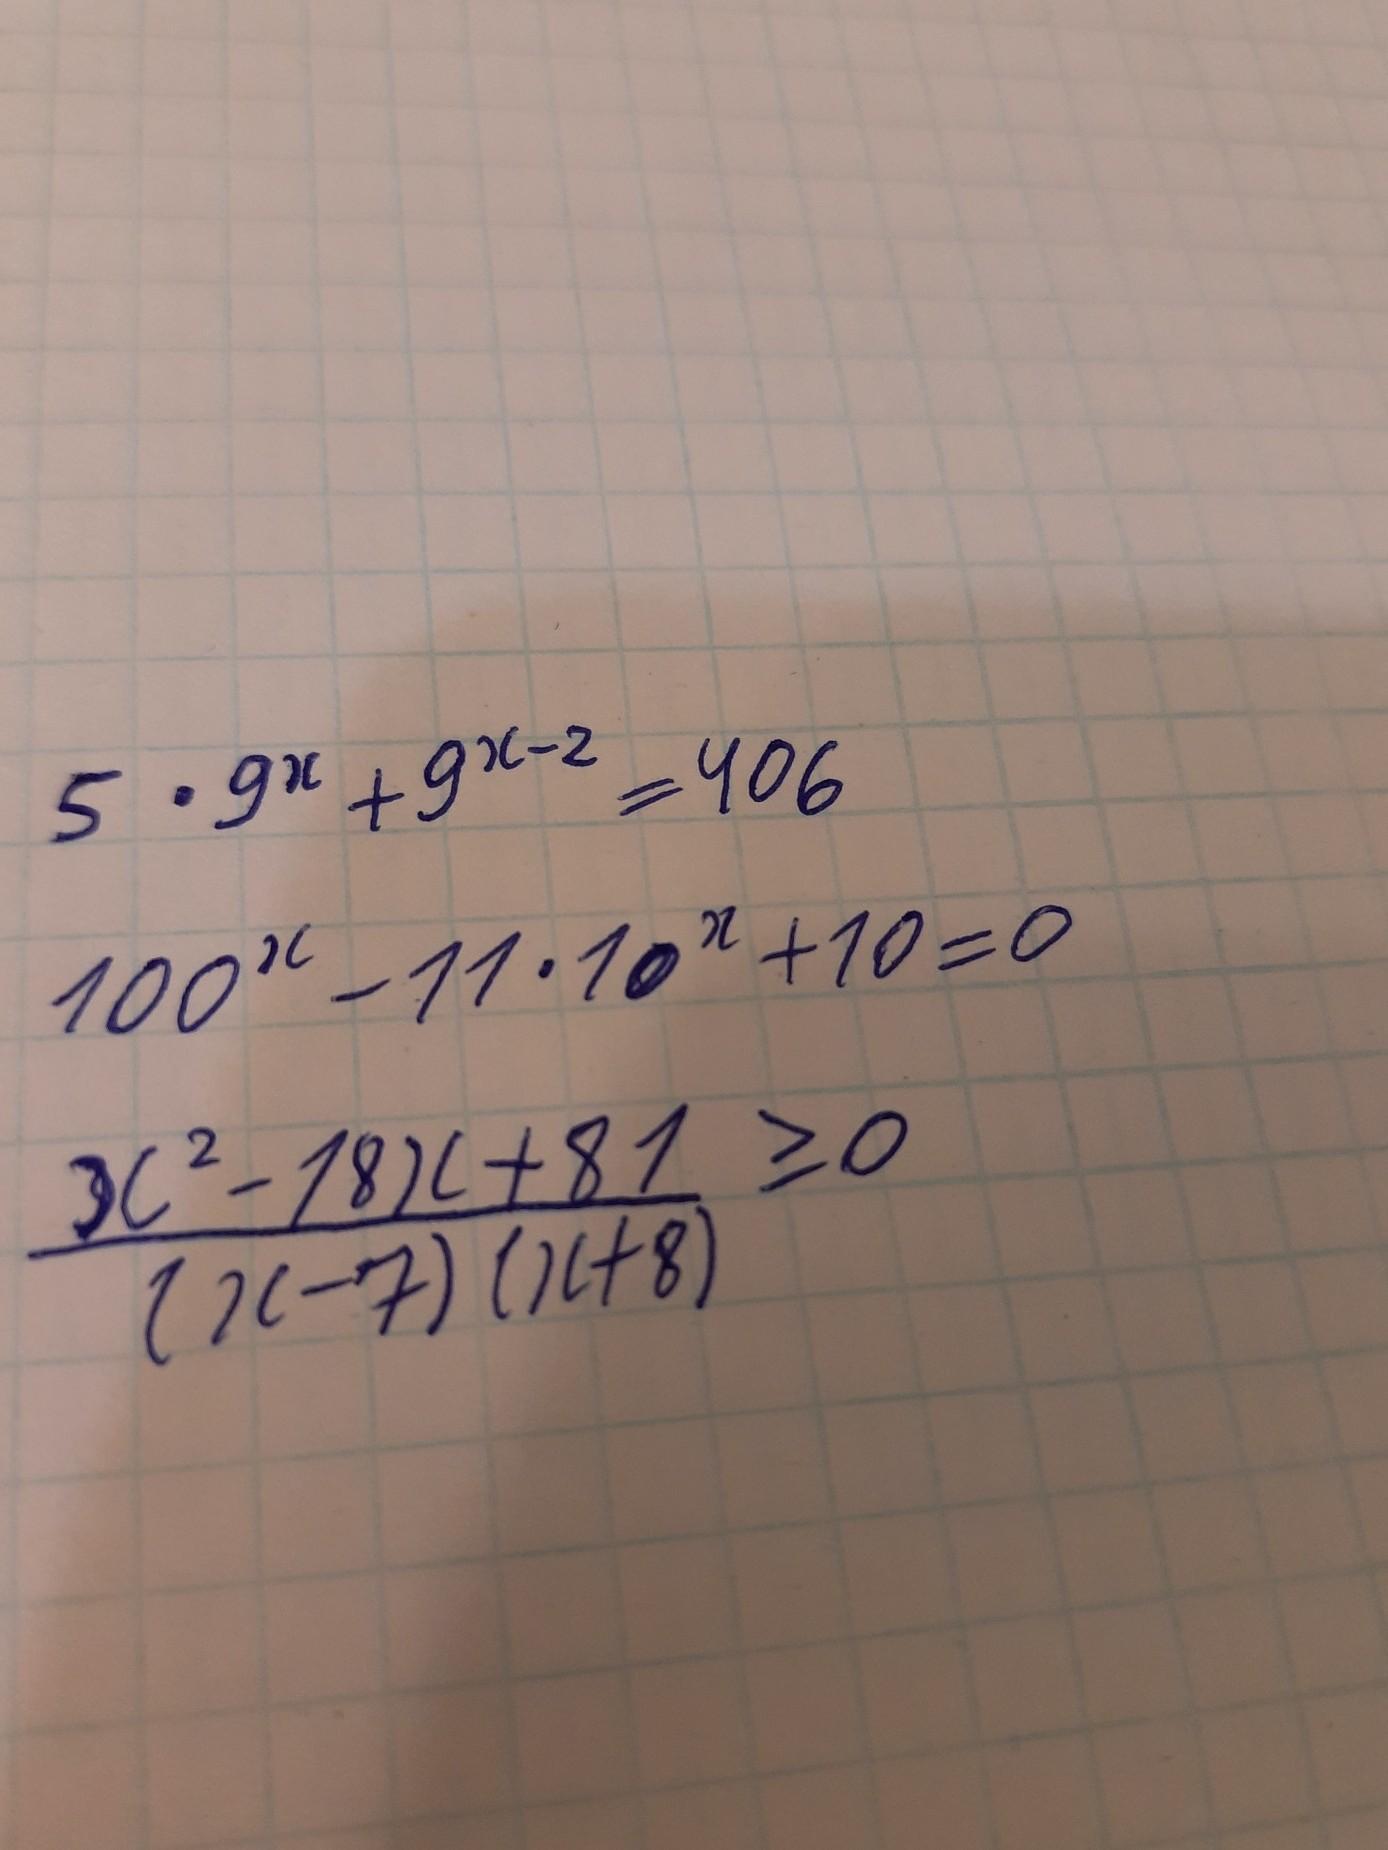 5 · 9^x + 9^{x-2} = 406
100^x - 11 · 10^x + 10 = 0
\frac{x^2 - 18x + 81}{(x-7)(x+8)} ≥ 0